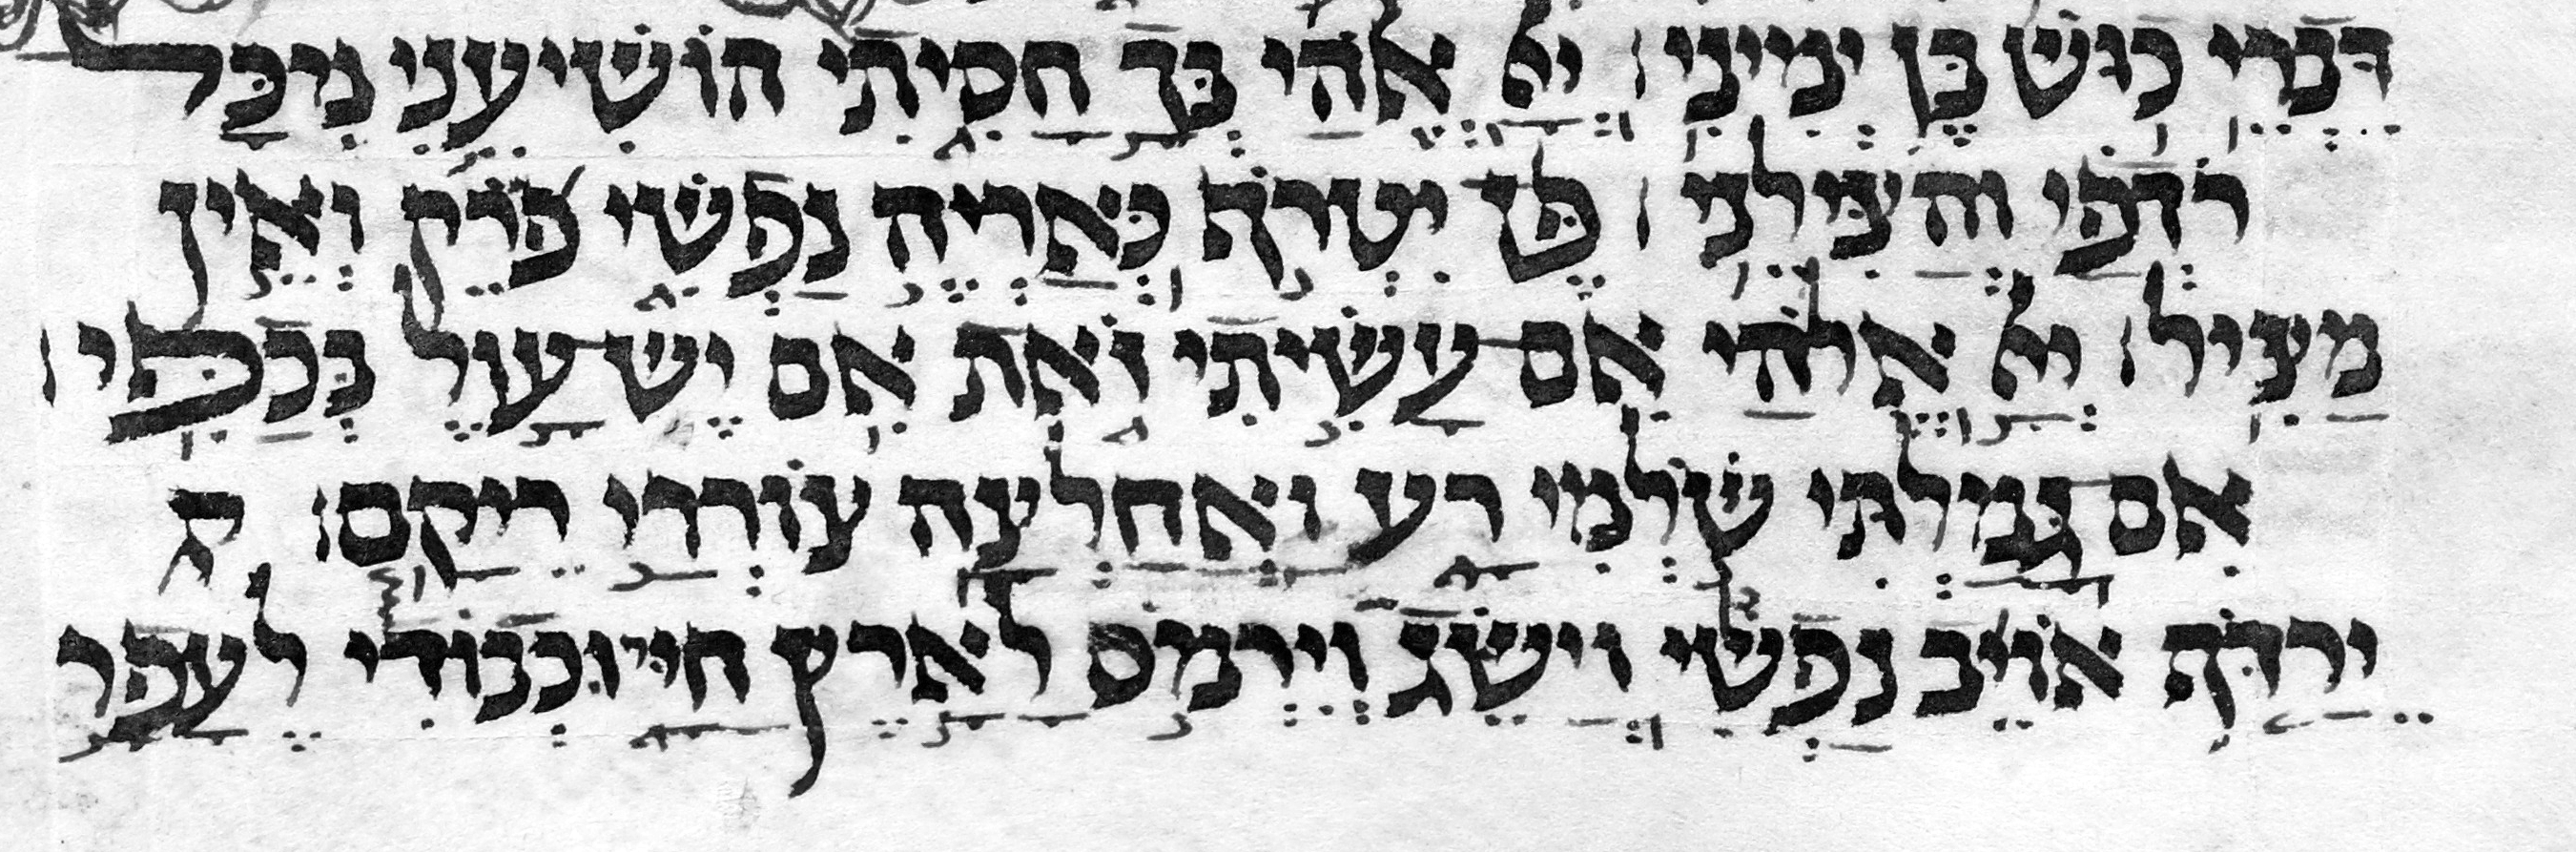 דִּבְרֵי כוּשׁ בֶּן יְמִינִי׃ יֲא אֱלֹהַי בְּךָ חָסִיתִי הוֹשִׁיעֵנִי מִכָּל
רֹדְפַי וְהַצִּילֵנִי׃ פֶּן יִטְרֹף כְּאַרְיֵה נַפְשִׁי פֹּרֵק וְאֵין
מַצִּיל׃ יֲא אֱלֹהַי אִם עָשִׂיתִי זֹאת אִם יֶשׁ עָוֶל בְּכַפָּי׃
אִם גָּמַלְתִּי שׁוֹלְמִי רָע וָאֲחַלְּצָה צוֹרְרִי רֵיקָם׃
יִרַדֹּף אוֹיֵב נַפְשִׁי וְיַשֵּׂג וְיִרְמֹס לָאָרֶץ חַיָּי וּכְבוֹדִי לֶעָפָר